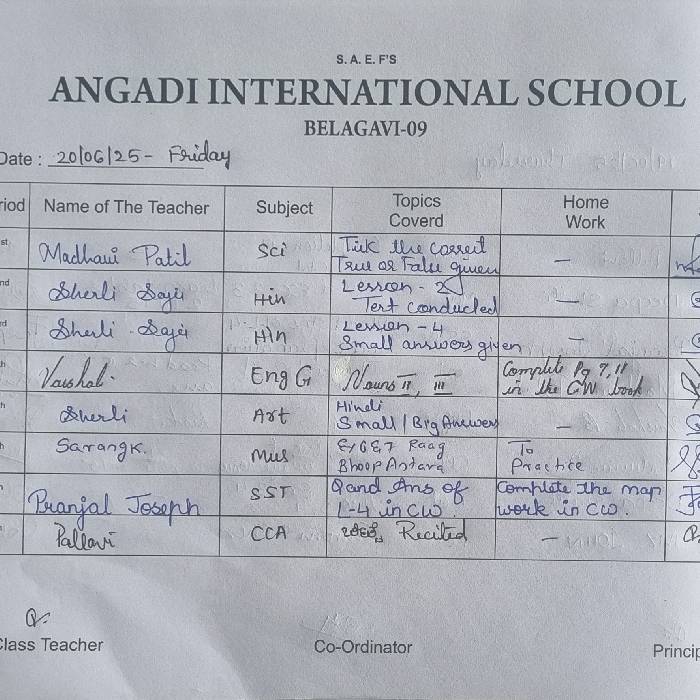 S. A. E. F'S
ANGADI INTERNATIONAL SCHOOL
BELAGAVI-09
Date : 20/06/25 - Friday
riod Name of The Teacher Subject Topics Coverd Home Work
st Madhavi Patil Sci Tick the correct
True or False given -
nd Sherli Saju Hin Lesson - 2
Test conducted -
rd Sherli Saju Hin Lession - 4
Small answers given -
h Vaishal. Eng G Nouns II, III Complete Pg 7, 11
in the GW book
h Sherli Art Hindi
Small / Big Answers -
h Sarangk. Mus Raag To
Bhoop Antara Practice
Pranjal Joseph SST Q and Ans of Complete the map
L-4 in CW work in CW.
Pallavi CCA Recited -
Class Teacher Co-Ordinator Princip